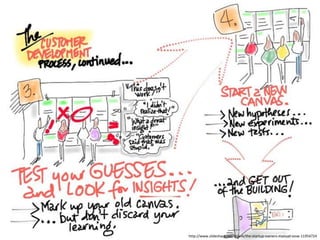 The
CUSTOMER
DEVELOPMENT
PROCESS, continued...
3.
"This doesn't
work!"
"I didn't
realize that!"
"What a great
insight!"
"Customers
said that was
stupid."
TEST your GUESSES...
and LOOK for INSIGHTS!
> Mark up your old canvas.
> ... but don't discard your
learning.
4.
START A NEW
CANVAS.
> New hypotheses...
> New experiments...
> New tests...
...and GET OUT
of the BUILDING!